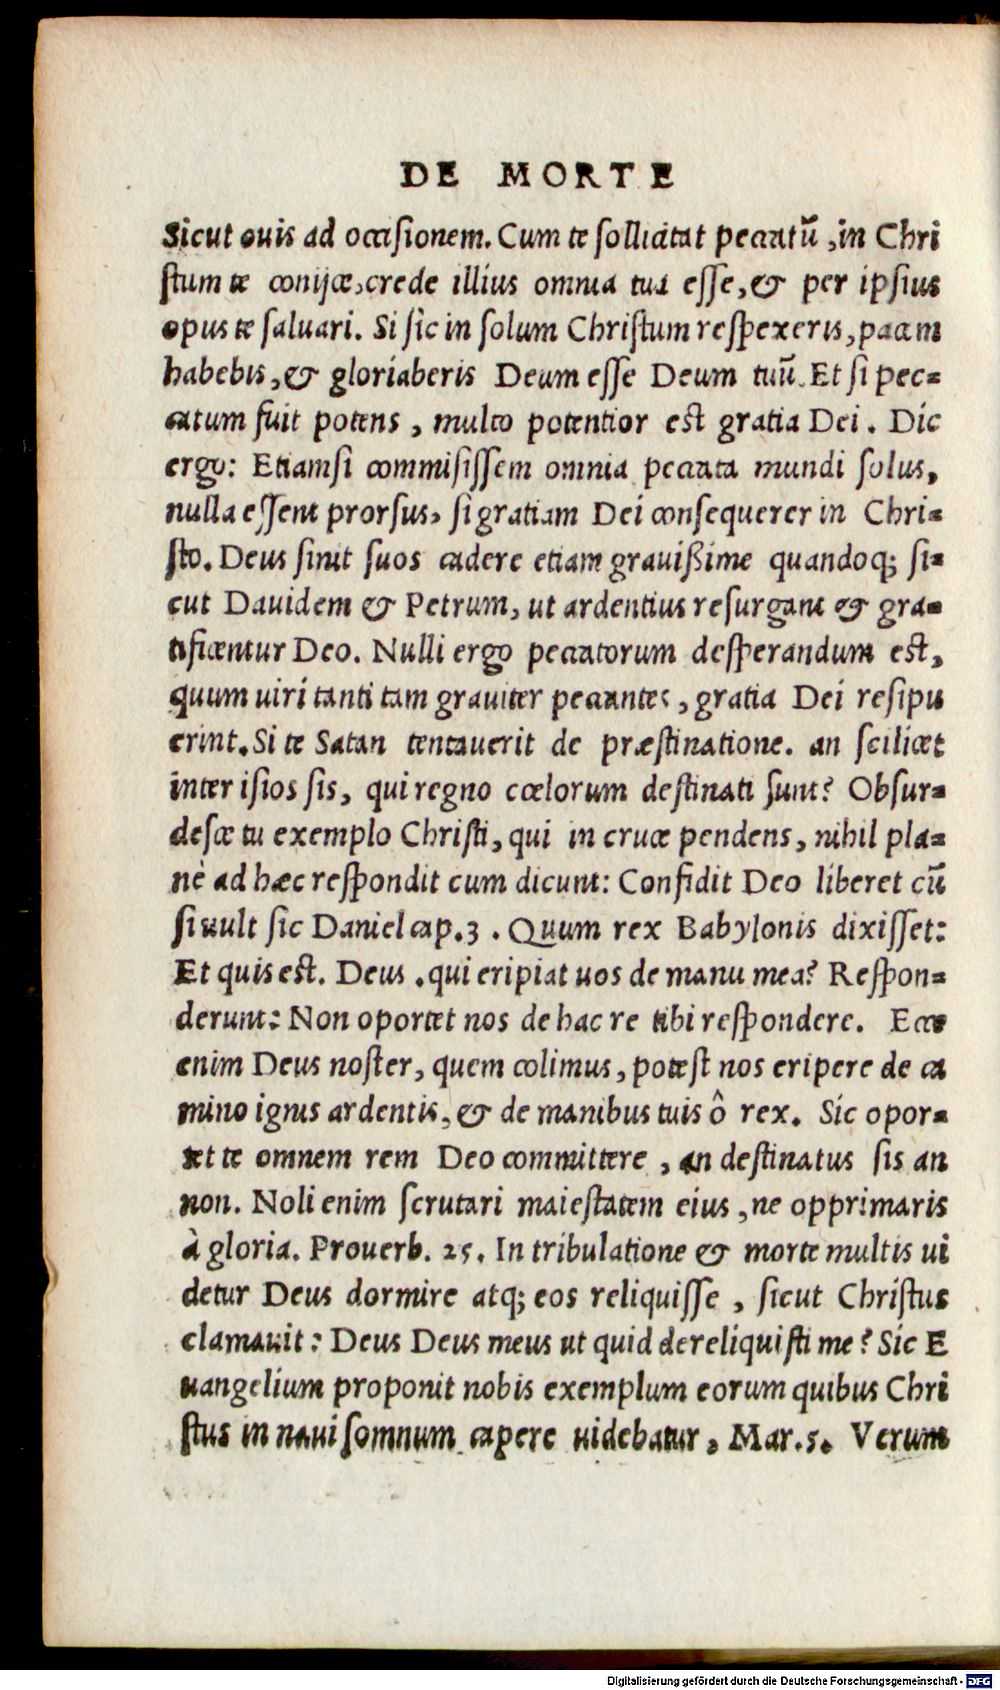 DE MORTE
Sicut ouis ad occisionem. Cum te sollicitat peccatū, in Chri
stum te conijce, crede illius omnia tua esse, & per ipsius
opus te saluari. Si sic in solum Christum respexeris, pacem
habebis, & gloriaberis Deum esse Deum tuū. Et si pec=
catum fuit potens, multo potentior est gratia Dei. Dic
ergo: Etiamsi commisissem omnia peccata mundi solus,
nulla essent prorsus, si gratiam Dei consequerer in Chri=
sto. Deus sinit suos cadere etiam grauißime quandoq; si=
cut Dauidem & Petrum, ut ardentius resurgant & gra=
tificentur Deo. Nulli ergo peccatorum desperandum est,
quum uiri tanti tam grauiter peccantes, gratia Dei resipu
erint. Si te Satan tentauerit de præstinatione. an scilicet
inter isios sis, qui regno cœlorum destinati sunt? Obsur=
desce tu exemplo Christi, qui in cruce pendens, nihil pla=
nè ad hæc respondit cum dicunt: Confidit Deo liberet cū
si uult sic Daniel cap. 3. Quum rex Babylonis dixisset:
Et quis est. Deus. qui eripiat uos de manu mea? Respon=
derunt: Non oportet nos de hac re tibi respondere. Ecce
enim Deus noster, quem colimus, potest nos eripere de ca
mino ignis ardentis, & de manibus tuis ô rex. Sic opor=
tet te omnem rem Deo committere, an destinatus sis an
non. Noli enim scrutari maiestatem eius, ne opprimaris
à gloria. Prouerb. 25. In tribulatione & morte multis ui
detur Deus dormire atq; eos reliquisse, sicut Christus
clamauit: Deus Deus meus ut quid dereliquisti me? Sic E
uangelium proponit nobis exemplum eorum quibus Chri
stus in naui somnum capere uidebatur, Mar. 5. Verum
Digitalisierung gefördert durch die Deutsche Forschungsgemeinschaft - DFG